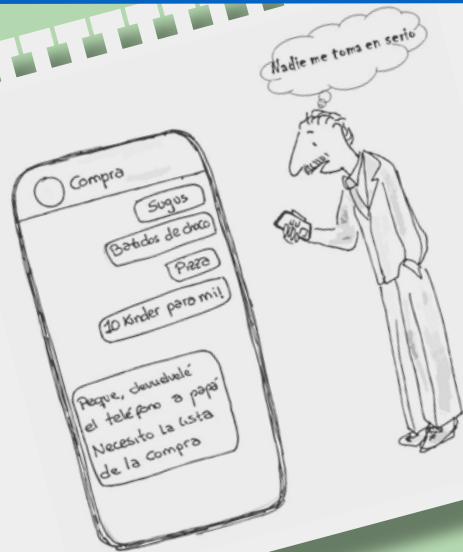 Nadie me toma en serio
Compra
Sugus
Batidos de choco
Pizza
10 Kinder para mi!
Peque, devuelvele
el teléfono a papá
Necesito la lista
de la compra